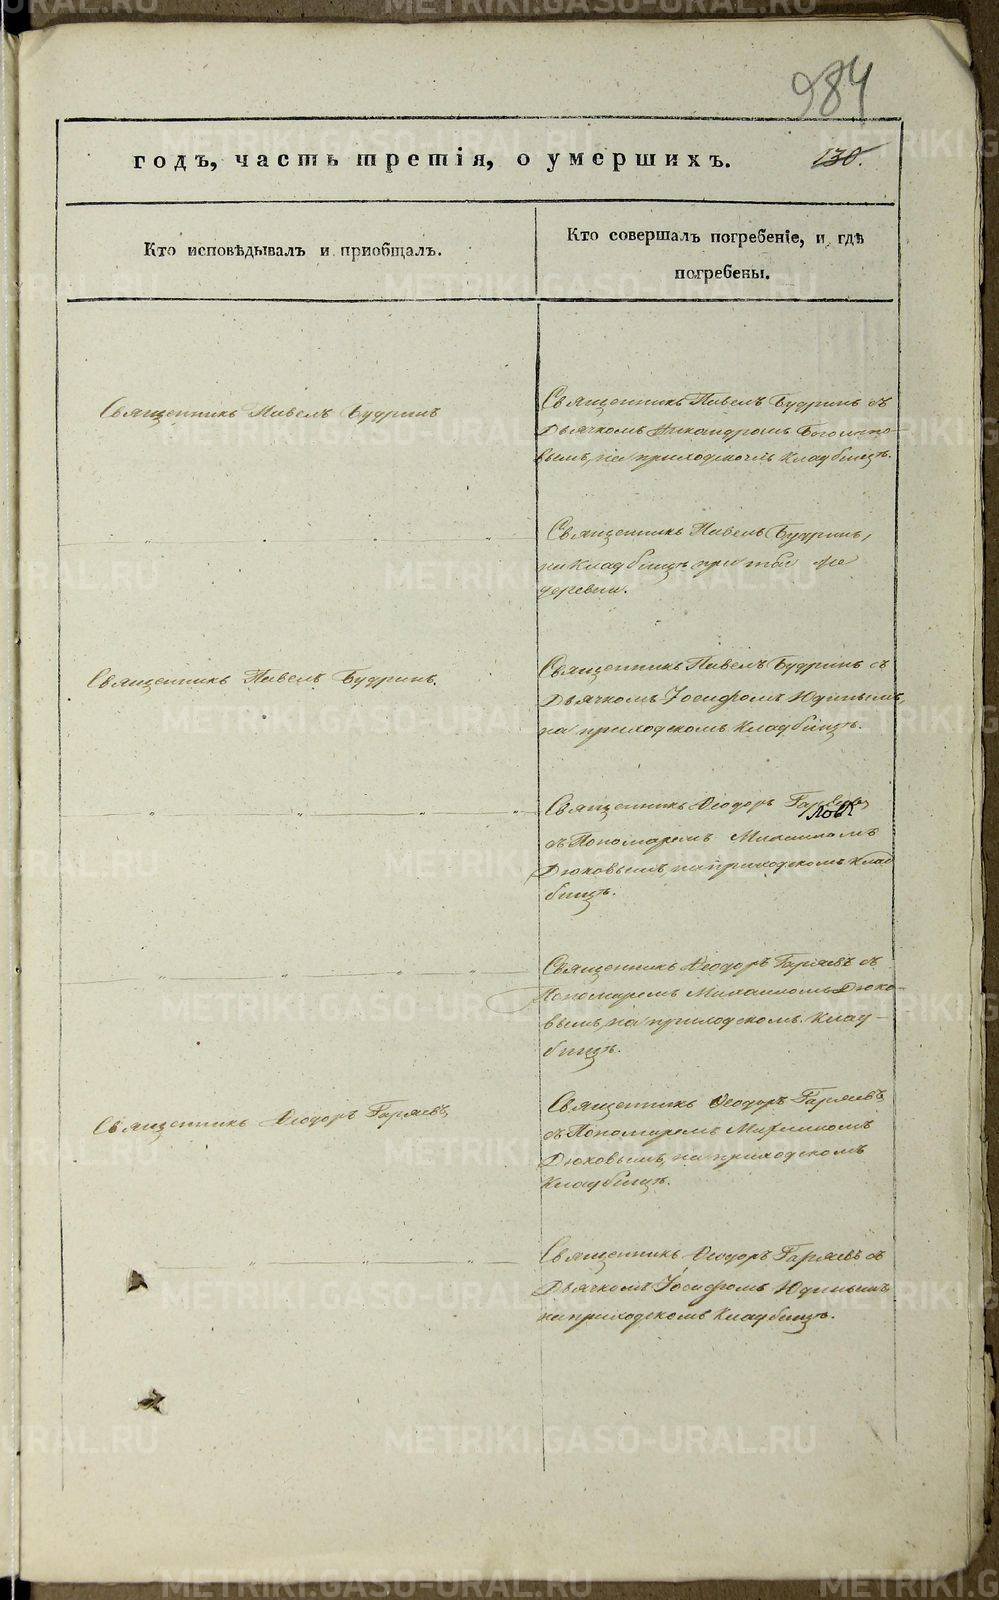 984
годъ, часть третія, о умершихъ. 130.
Кто исповѣдывалъ и пріобщалъ.
Кто совершалъ погребеніе, и гдѣ
погребены.
Священникъ Павелъ Будринъ
Священникъ Павелъ Будринъ съ
Дьячкомъ Никандромъ
вымъ, на приходскомъ Кладбищѣ.
Священникъ Павелъ Будринъ,
на Кладбищѣ при той же
деревни.
Священникъ Павелъ Будринъ.
Священникъ Павелъ Будринъ съ
Дьячкомъ Іосифомъ Юдинымъ,
на приходскомъ Кладбищѣ.
Священникъ Ѳеодоръ
съ Пономаремъ Михаиломъ
Дюковымъ, на приходскомъ Клад
бищѣ.
Священникъ Ѳеодоръ Гаряевъ съ
Пономаремъ Михаиломъ Дюко-
вымъ, на приходскомъ Клад-
бищѣ.
Священникъ Ѳеодоръ Гаряевъ
Священникъ Ѳеодоръ Гаряевъ
съ Пономаремъ Михаиломъ
Дюковымъ, на приходскомъ
Кладбищѣ.
Священникъ Ѳеодоръ Гаряевъ съ
Дьячкомъ Іосифомъ Юдинымъ
на приходскомъ Кладбищѣ.
METRIKI.GASO-URAL.RU